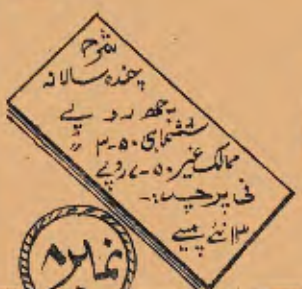 شرح
چندہ سالانہ
چھ روپے
ششماہی ۵۰-۳ "
ممالک غیر ۵۰-۷ روپے
فی پرچہ :-
۱۳ نئے پیسے
نمبر ۸